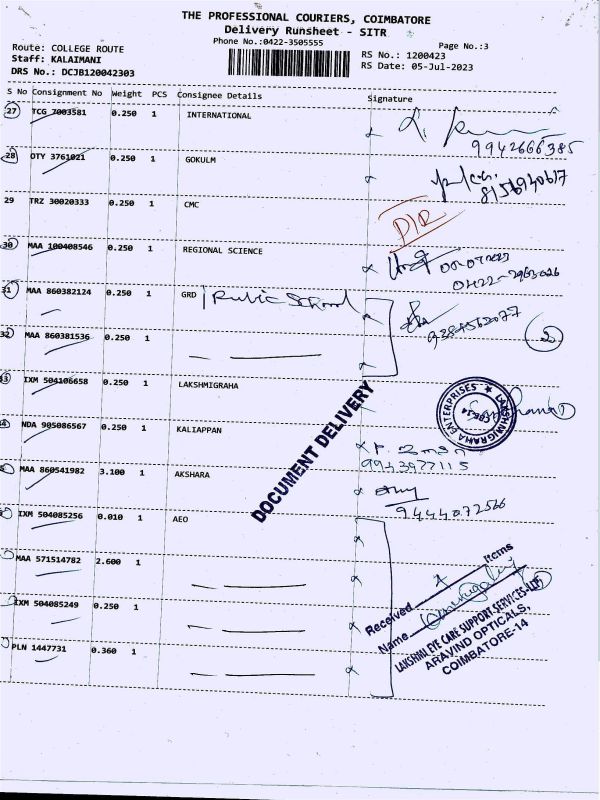 THE PROFESSIONAL COURIERS, COIMBATORE
Delivery Runsheet - SITR
Phone No.:0422-3505555
Page No.:3
Route: COLLEGE ROUTE
Staff: KALAIMANI
DRS No.: DCJB120042303
RS No.: 1200423
RS Date: 05-Jul-2023
S No Consignment No Weight PCS Consignee Details Signature
27 TCG 7003581 0.250 1 INTERNATIONAL
9942666385
28 OTY 3761021 0.250 1 GOKULM
8156940617
29 TRZ 30020333 0.250 1 CMC
30 MAA 100408546 0.250 1 REGIONAL SCIENCE
0422-2963026
31 MAA 860382124 0.250 1 GRD Public School
32 MAA 860381536 0.250 1
2
33 IXM 504106658 0.250 1 LAKSHMIGRAHA
LAKSHMIGRAHA ENTERPRISES
1
NDA 905086567 0.250 1 KALIAPPAN
9943977115
MAA 860541982 3.100 1 AKSHARA
9444072566
DOCUMENT DELIVERY
IXM 504085256 0.010 1 AEO
MAA 571514782 2.600 1
IXM 504085249 0.250 1
PLN 1447731 0.360 1
Received Items
Name
LAKSHMI EYE CARE SUPPORT SERVICES-LLP
ARAVIND OPTICALS,
COIMBATORE-14